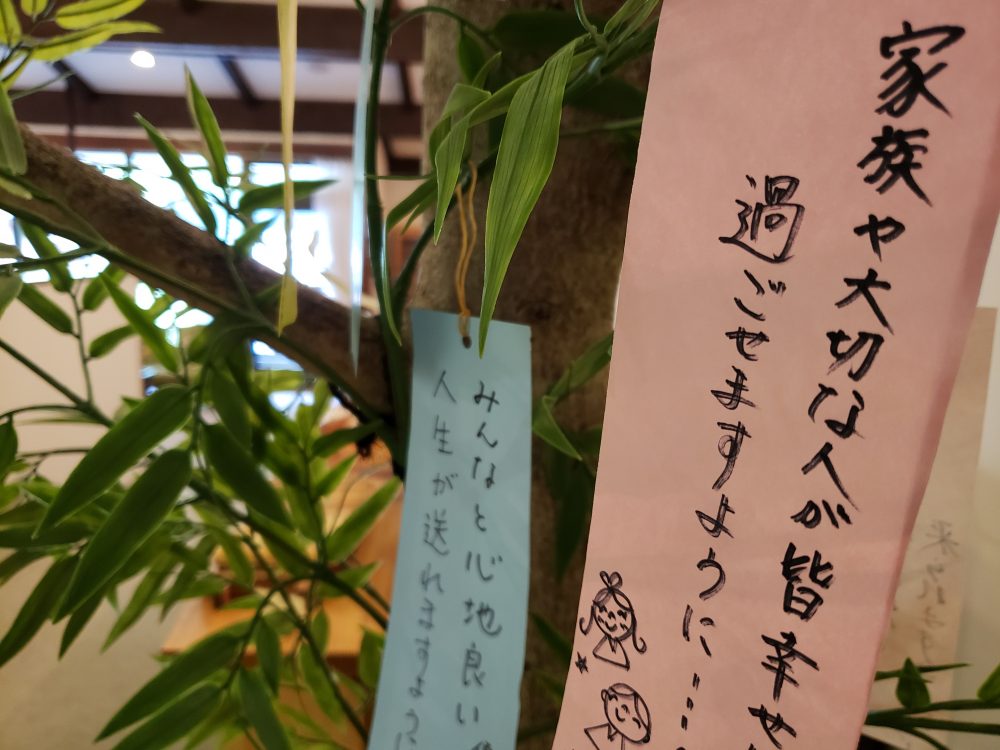 家族や大切な人が皆幸せ
過ごせますように…
みんなと心地良い
人生が送れますように